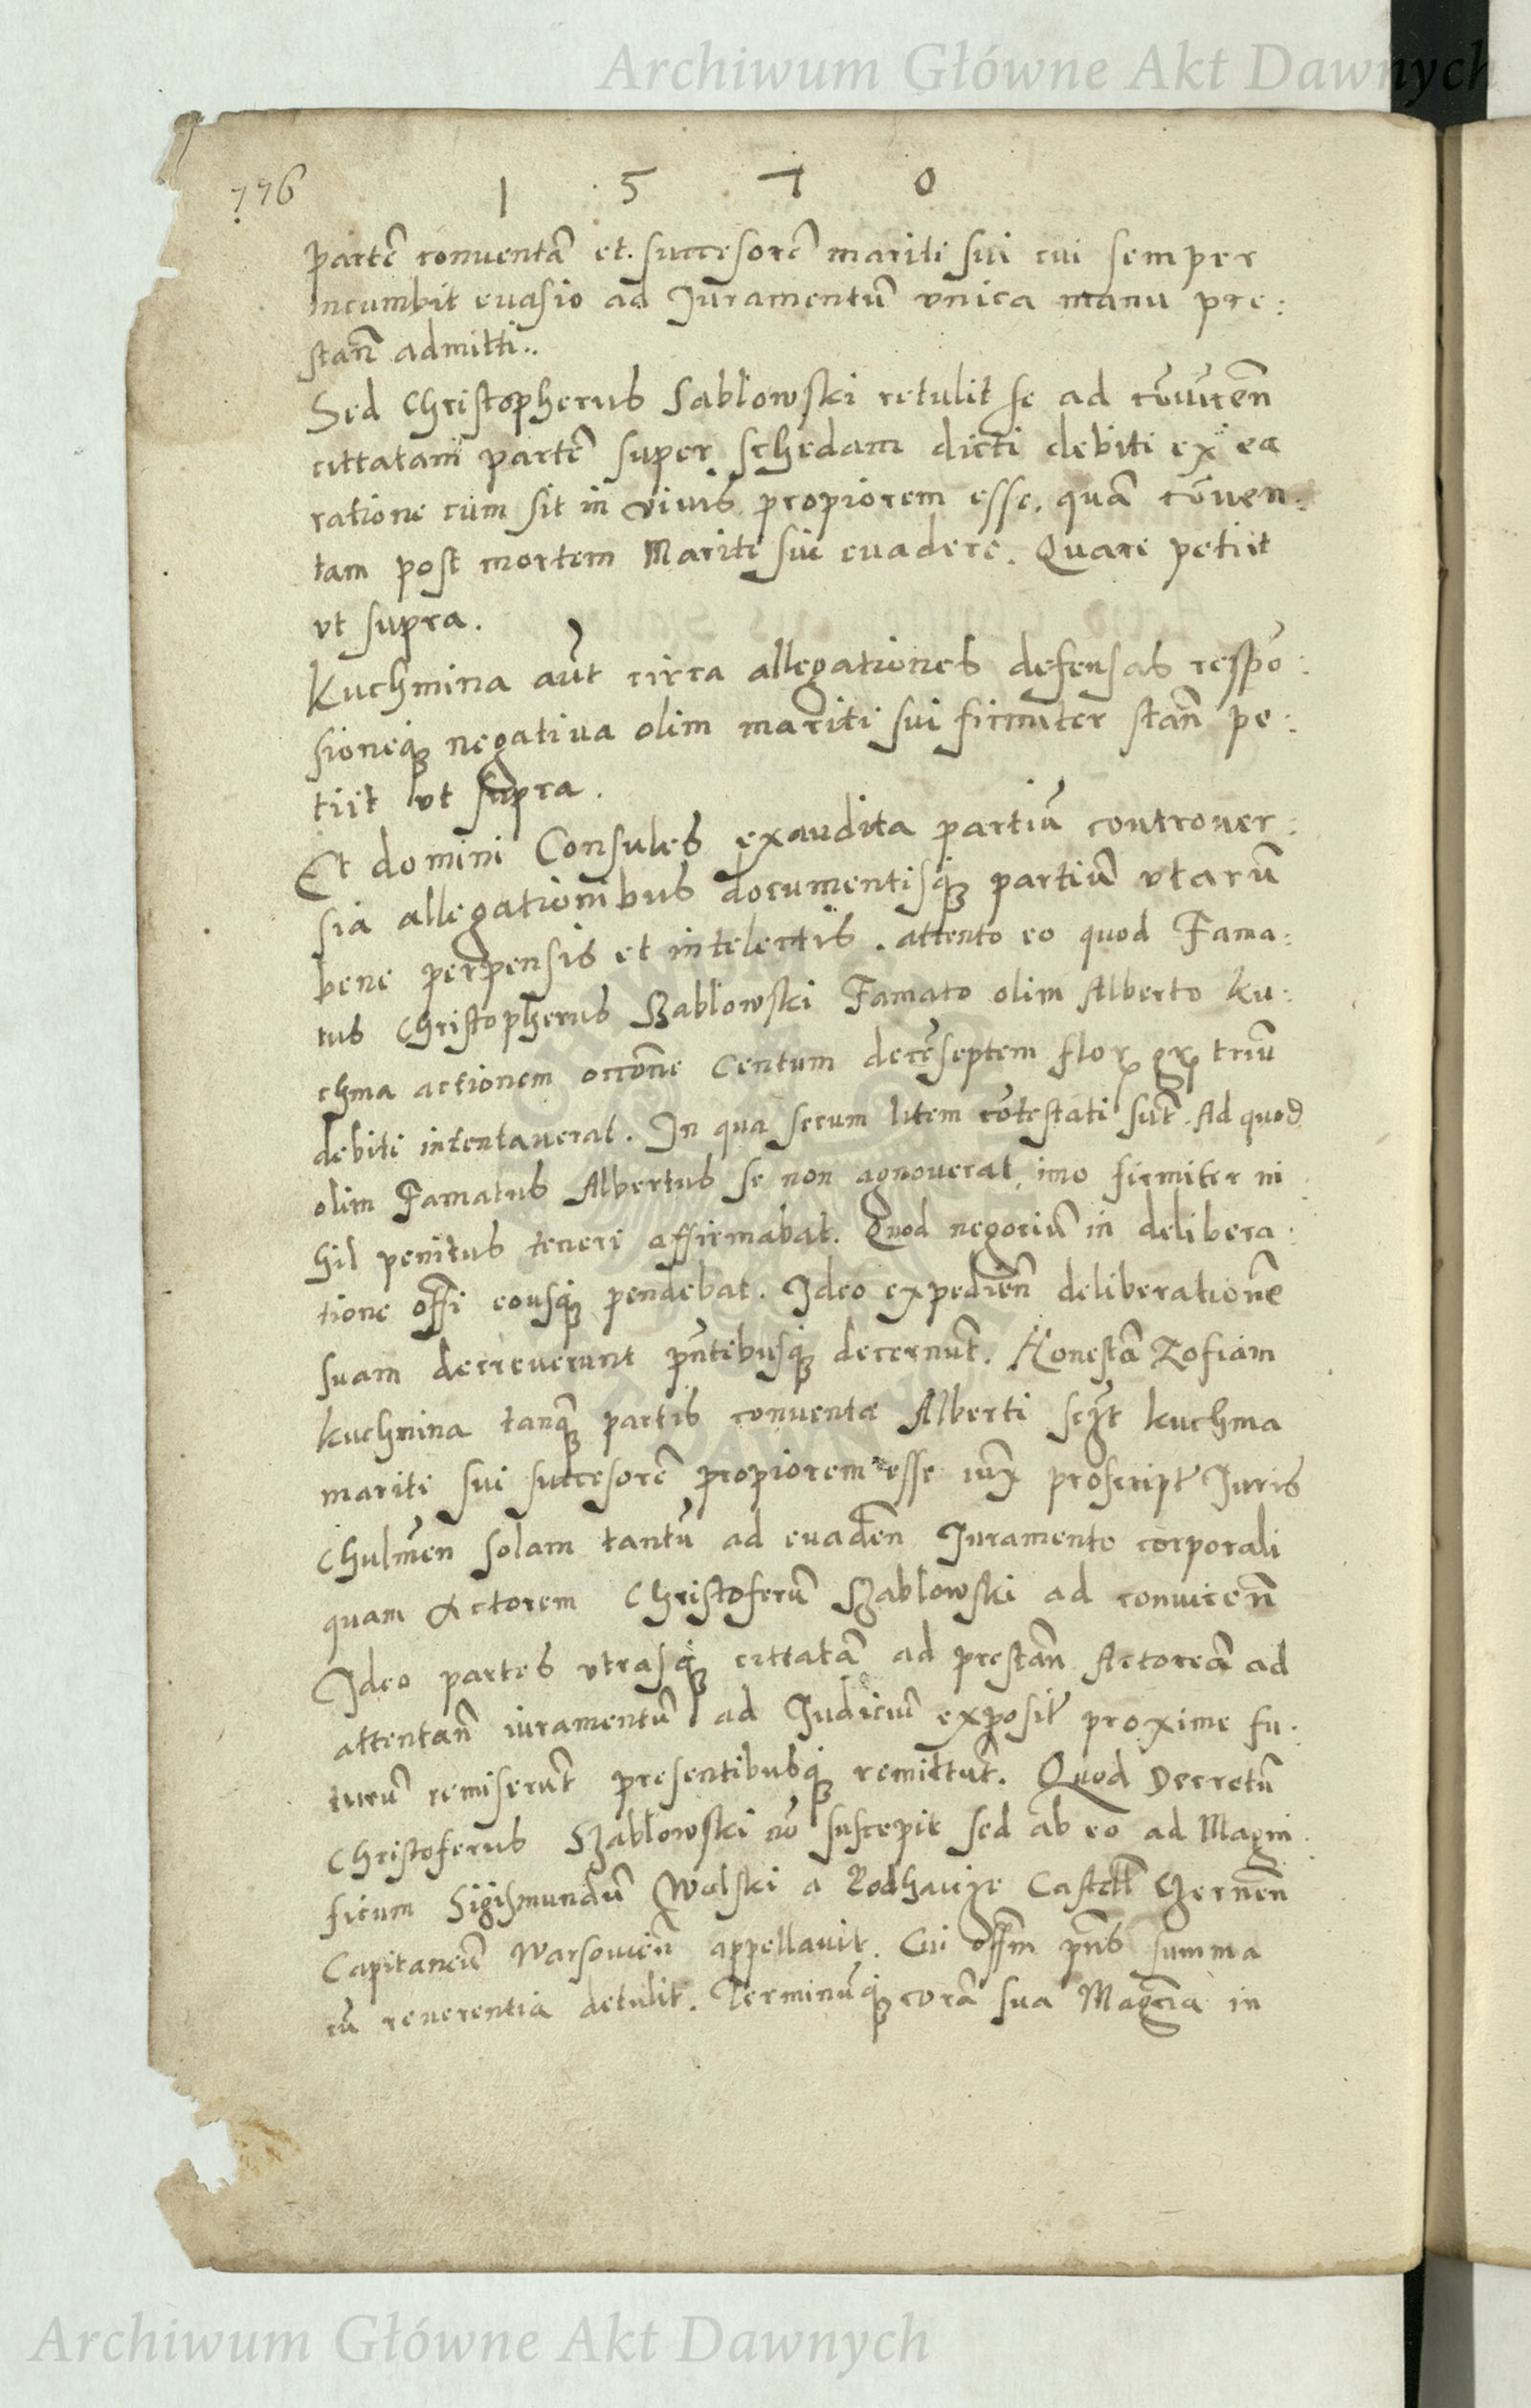 Archiwum Główne Akt Dawnych
776
1 5 7 0
partē conuentā et. succesorē mariti sui cui semper
incumbit euasio ad Juramentū vnica manu pre:
stan̄ admitti..
Sed Christopherus Sablowski retulit se ad cōuicen̄
cittatam partē super schedam dicti debiti ex ea
ratione cum sit in viuis propiorem esse. quā cōuen:
tam post mortem Mariti sui euadere. Quare petiit
vt supra.
Kuchmina aūt circa allegationes defensas respō:
sioneq negatiua olim mariti sui firmiter stan̄ pe:
tiit vt supra.
Et domini Consules exaudita partiū controuer:
sia allegationibus documentisq partiū vtarū
bene perpensis et intelectis. attento eo quod Fama:
tus Christopherus Szablowski Famato olim Alberto Ku:
chma actionem occōne Centum decēseptem flor gr triū
debiti intentauerat. In qua secum litem cōtestati sūt. Ad quod
olim Famatus Albertus se non agnouerat, imo firmiter ni
hil penitus teneri affirmabat. Quod negociū in delibera:
tione offi eousq pendebat. Ideo expedien̄ deliberationē
suam decreuerunt pn̄tibusq decernūt. Honestā Zofiam
Kuchmina tanq partis conuentæ Alberti scꝫt Kuchma
mariti sui succesorē propiorem esse iux proscript Juris
Chulmen̄ solam tantū ad euaden̄ Juramento corporali
quam Actorem Christoferū Szablowski ad conuicen̄
Ideo partes vtrasq cittatā ad prestan̄ Actoreā ad
attentan̄ iuramentū ad Judiciū exposit proxime fu:
turū remiserūt presentibusq remittūt. Quod Decretū
Christoferus Szabłowski nō suscepit sed ab eo ad Magni:
ficum Sigismundū Wolski a Podhaicze Castell Czernen̄
Capitaneū Warsouien̄ appellauit. Cui offm pn̄s summa
cū reuerentia detulit. Terminūq corā sua Magcia in
Archiwum Główne Akt Dawnych